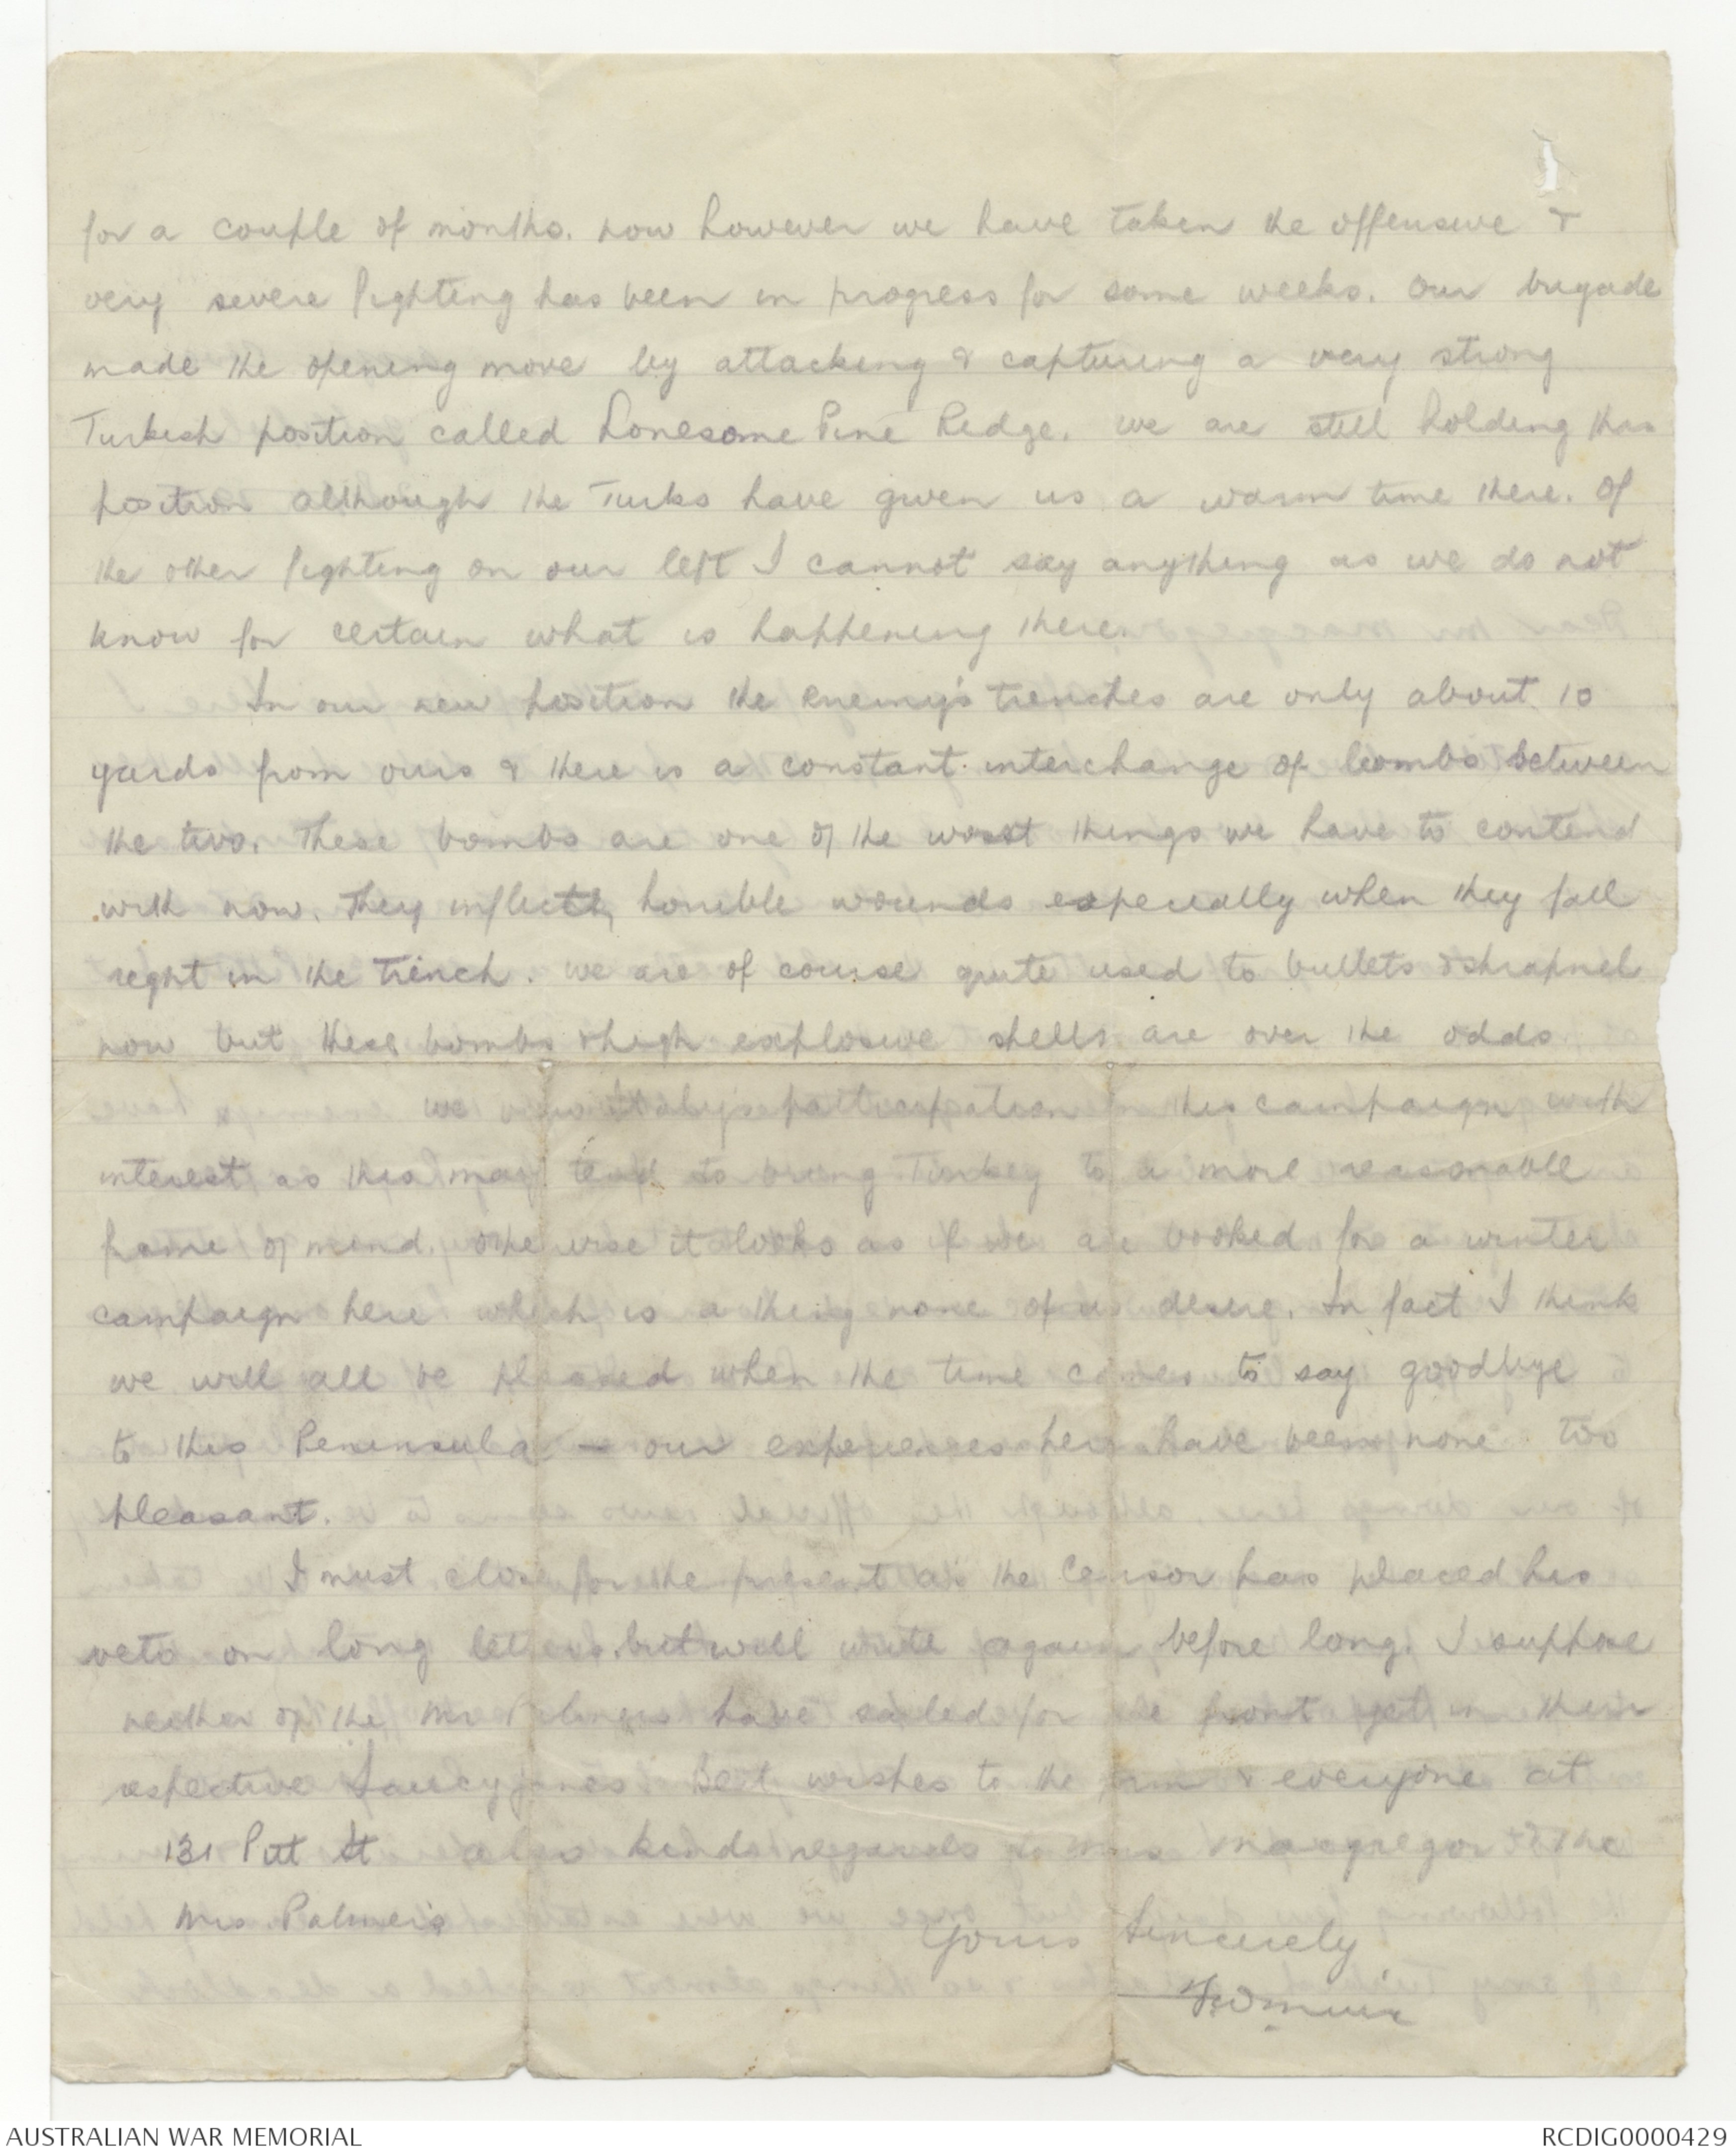 for a couple of months. now however we have taken the offensive &
very severe fighting has been in progress for some weeks. Our brigade
made the opening move by attacking & capturing a very strong
Turkish position called Lonesome Pine Ridge. we are still holding this
position although the Turks have given us a warm time there. Of
the other fighting on our left I cannot say anything as we do not
know for certain what is happening there.
In our new position the enemy's trenches are only about 10
yards from ours & there is a constant interchange of bombs between
the two. These bombs are one of the worst things we have to contend
with now. They inflict horrible wounds especially when they fall
right in the trench. we are of course quite used to bullets & shrapnel
now but these bombs & high explosive shells are over the odds
we view Italy's participation in this campaign with
interest as this may tend to bring Turkey to a more reasonable
frame of mind. otherwise it looks as if we are booked for a winter
campaign here which is a thing none of us desire. In fact I think
we will all be pleased when the time comes to say goodbye
to this Peninsula – our experiences here have been none too
pleasant.
I must close for the present as the Censor has placed his
veto on long letters. but will write again before long. I suppose
neither of the Mr Palmers have sailed for the front yet in their
respective Saucy Janes Best wishes to the firm & everyone at
131 Pitt St also kind regards to Mrs Macgregor & the
Mrs Palmers
Yours Sincerely
Muir
AUSTRALIAN WAR MEMORIAL
RCDIG0000429